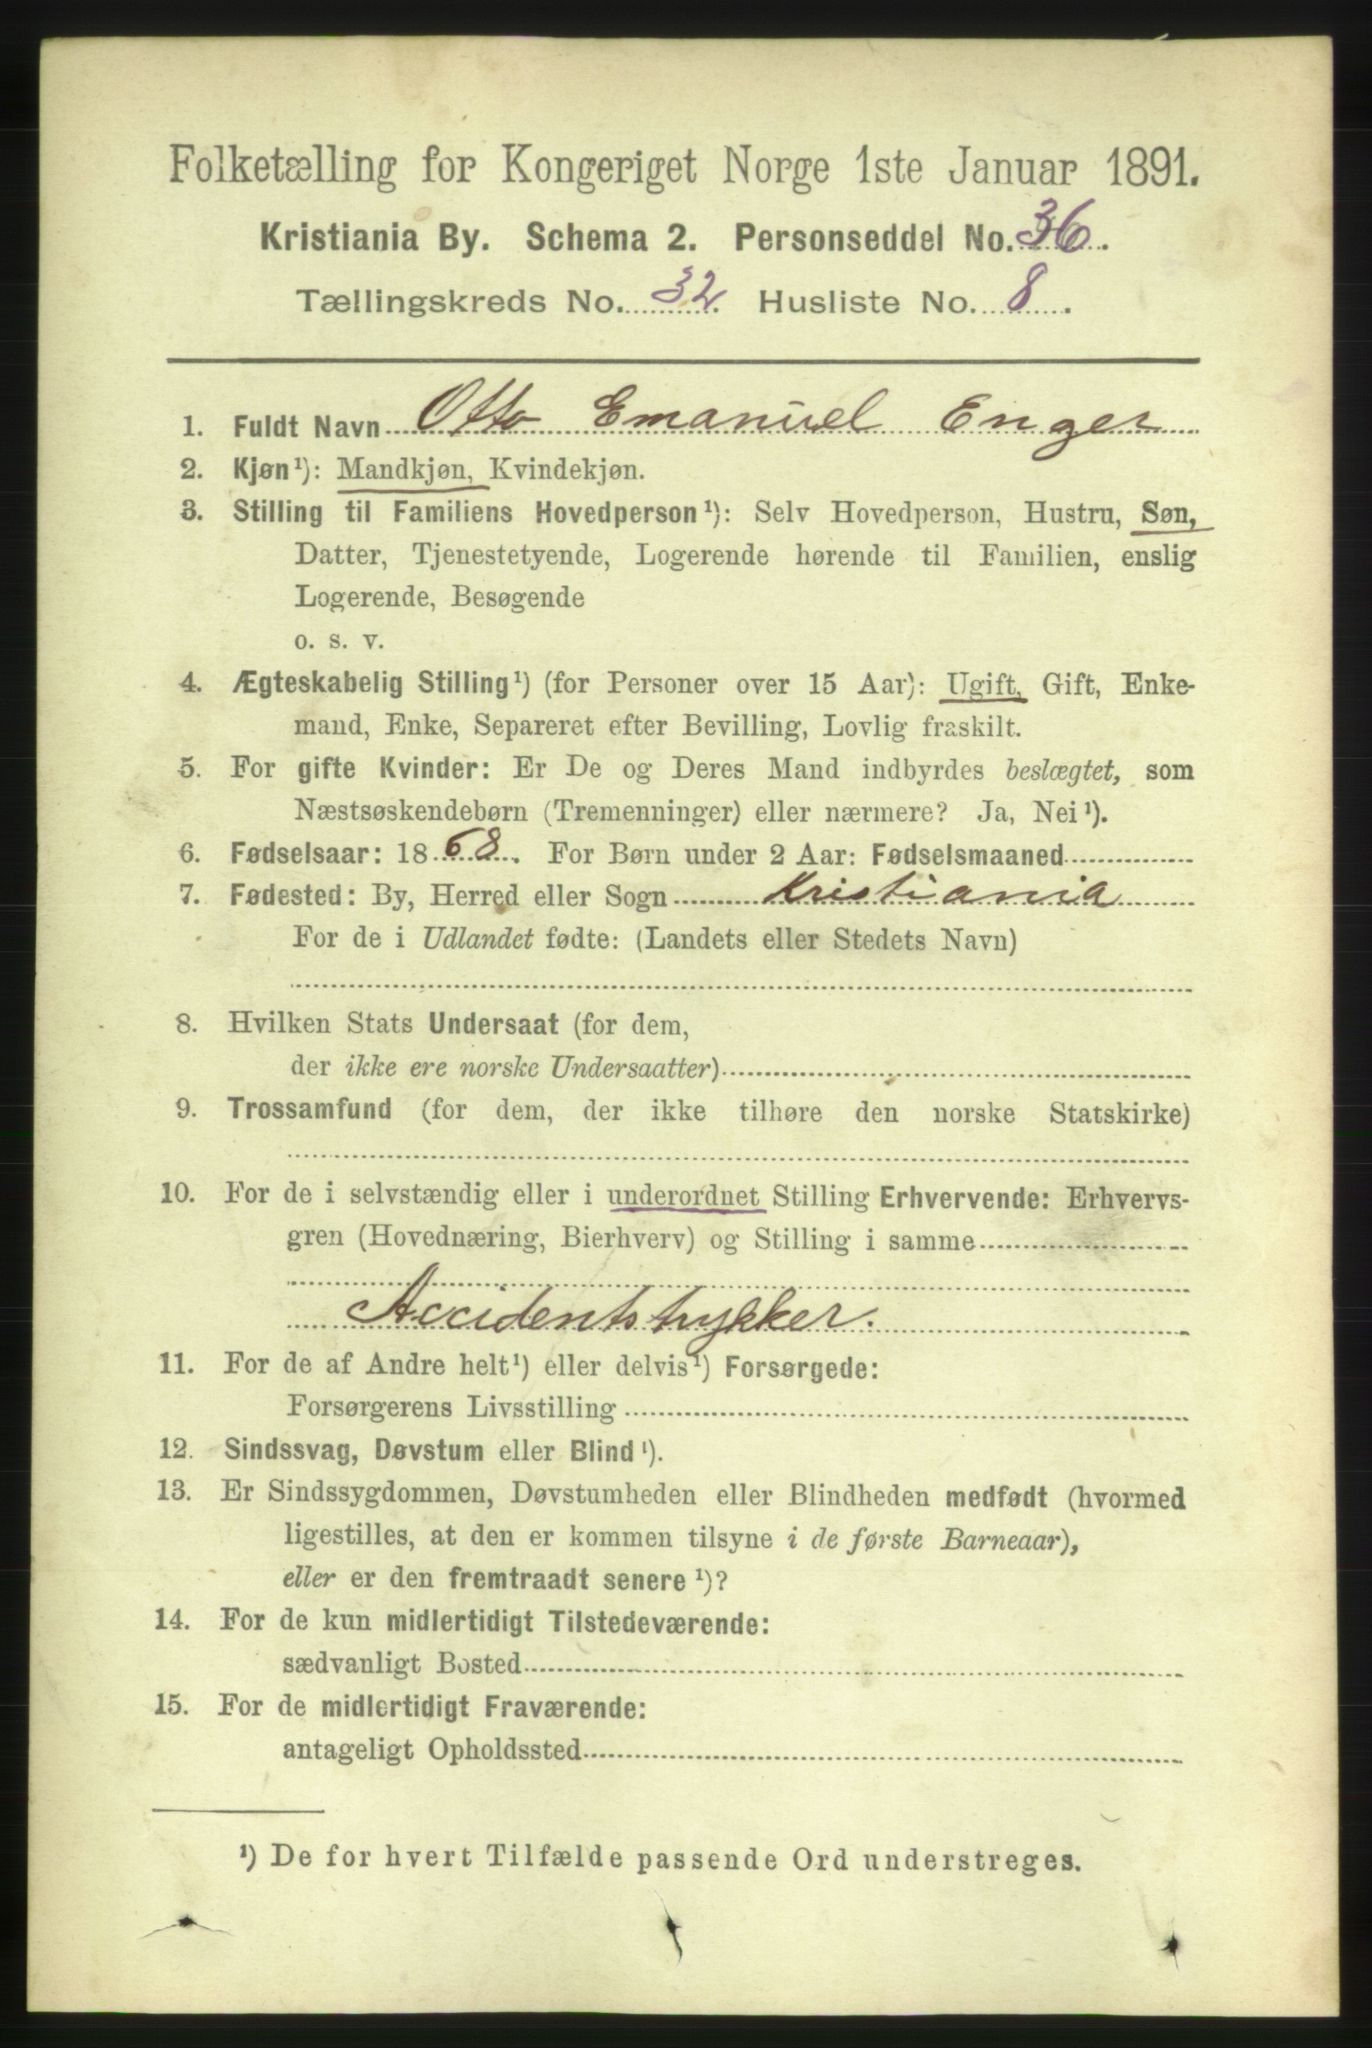 Folketælling for Kongeriget Norge 1ste Januar 1891.
Kristiania By. Schema 2. Personseddel No. 36.
Tællingskreds No. 32. Husliste No. 8.
1. Fuldt Navn Otto Emanuel Enger
2. Kjøn¹): Mandkjøn, Kvindekjøn.
3. Stilling til Familiens Hovedperson¹): Selv Hovedperson, Hustru, Søn,
Datter, Tjenestetyende, Logerende hørende til Familien, enslig
Logerende, Besøgende
o. s. v.
4. Ægteskabelig Stilling¹) (for Personer over 15 Aar): Ugift, Gift, Enke-
mand, Enke, Separeret efter Bevilling, Lovlig fraskilt.
5. For gifte Kvinder: Er De og Deres Mand indbyrdes beslægtet, som
Næstsøskendebørn (Tremenninger) eller nærmere? Ja, Nei¹).
6. Fødselsaar: 1868. For Børn under 2 Aar: Fødselsmaaned
7. Fødested: By, Herred eller Sogn Kristiania
For de i Udlandet fødte: (Landets eller Stedets Navn)
8. Hvilken Stats Undersaat (for dem,
der ikke ere norske Undersaatter)
9. Trossamfund (for dem, der ikke tilhøre den norske Statskirke)
10. For de i selvstændig eller i underordnet Stilling Erhvervende: Erhvervs-
gren (Hovednæring, Bierhverv) og Stilling i samme
Accidentstrykker.
11. For de af Andre helt¹) eller delvis¹) Forsørgede:
Forsørgerens Livsstilling
12. Sindssvag, Døvstum eller Blind¹).
13. Er Sindssygdommen, Døvstumheden eller Blindheden medfødt (hvormed
ligestilles, at den er kommen tilsyne i de første Barneaar),
eller er den fremtraadt senere¹)?
14. For de kun midlertidigt Tilstedeværende:
sædvanligt Bosted
15. For de midlertidigt Fraværende:
antageligt Opholdssted
¹) De for hvert Tilfælde passende Ord understreges.